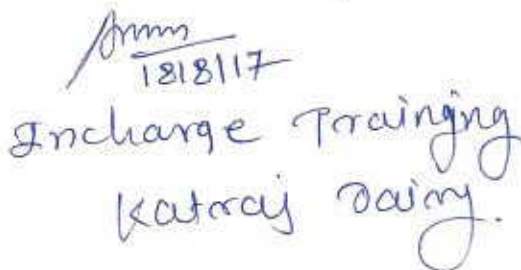 18/8/17
Incharge Trainging
Katraj Dairy.